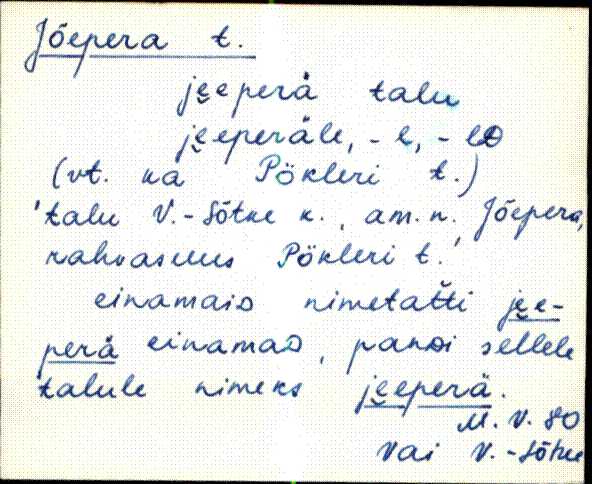 Jõepera t.
je̮eperä talu
je̮eperäle, -l, -lD
(vt. ka Pökleri t.)
'talu V.-Sõtke k., am.n. Jõepera,
rahvasuus Pökleri t.'
einamaiD nimetatti je̮e-
perä einamaD, panDi sellele
talule nimeks je̮eperä.
M. V. 80
Vai V.-Sõtke